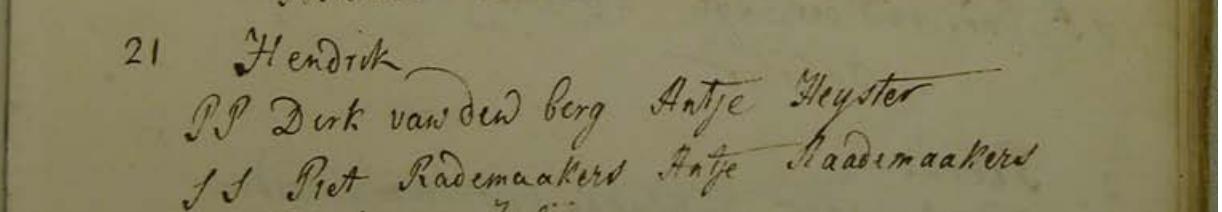 21 Hendrik
PP Dirk van den berg Antje Heyster
SS Piet Rademaakers Antje Raademaakers